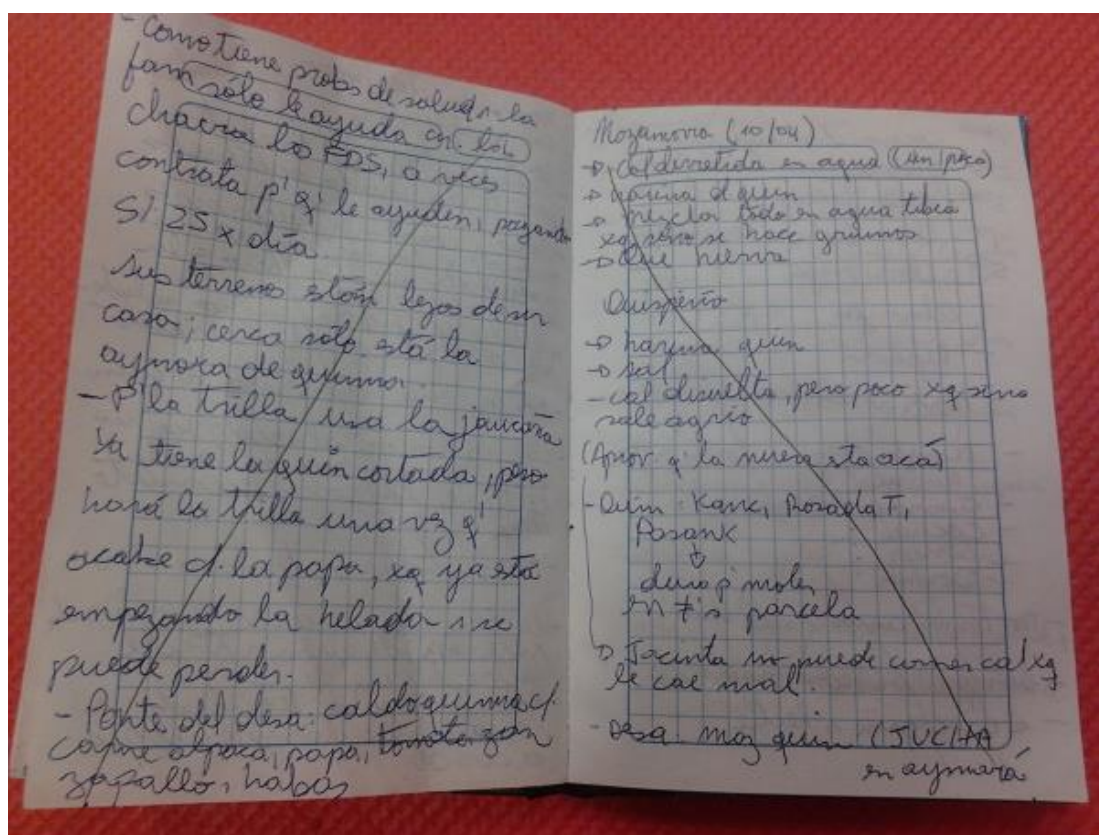 - Como tiene probs de salud, la
fam sólo le ayuda en la
chacra los FDS, a veces
contrata p' q' le ayuden, pagando
S/ 25 x día
Sus terrenos stán lejos de su
casa; cerca sólo está la
aynoka de quinua.
- P' la trilla usa la jaucaña
Ya tiene la quin cortada, pero
hará la trilla una vz q'
acabe d. la papa, xq ya está
empezando la helada i se
puede perder.
- Parte del desa: caldo quinua c/.
carne alpaca, papa, tomate, zan
zapallo, habas
Mazamorra (10/04)
→ Cal derretida en agua (un poco)
→ harina d quin
→ mezclar todo en agua tibia
xq sino se hace grumos
→ Que hierva
Quispiño
→ harina quin
→ sal
- cal disuelta, pero poco xq sino
sale agrio
(Aynok q' la nuera sta acá)
- Quin: Kank, Rosada T,
Pasank
↓
duro p' moler
en parcela
→ Jacinta no puede comer cal xq
le cae mal.
- Desa: maz quin (JUCHA
en aymará